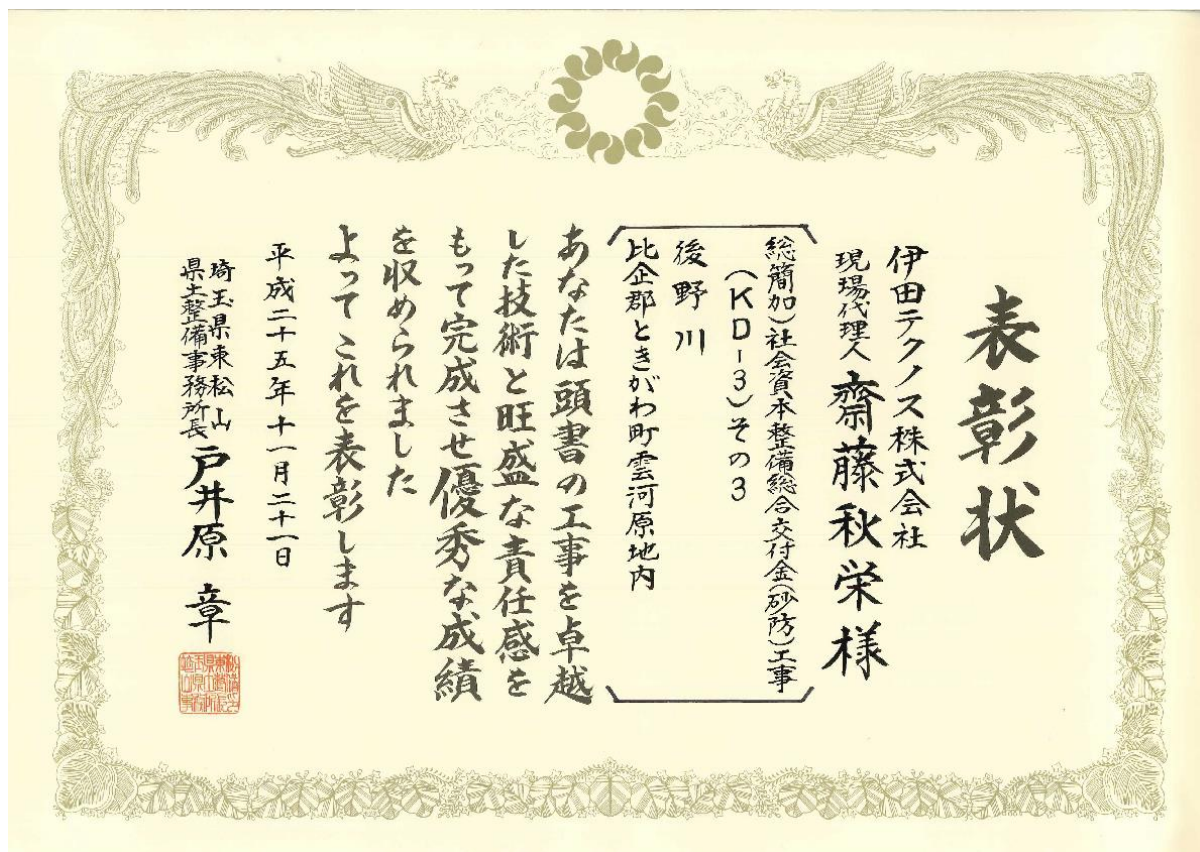 表彰状
伊田テクノス株式会社
現場代理人 齋藤秋栄様
総簡加)社会資本整備総合交付金(砂防)工事
(KD-3)その3
後野川
比企郡ときがわ町雲河原地内
あなたは頭書の工事を卓越
した技術と旺盛な責任感を
もって完成させ優秀な成績
を収められました
よってこれを表彰します
平成二十五年十一月二十一日
埼玉県東松山
県土整備事務所長 戸井原 章